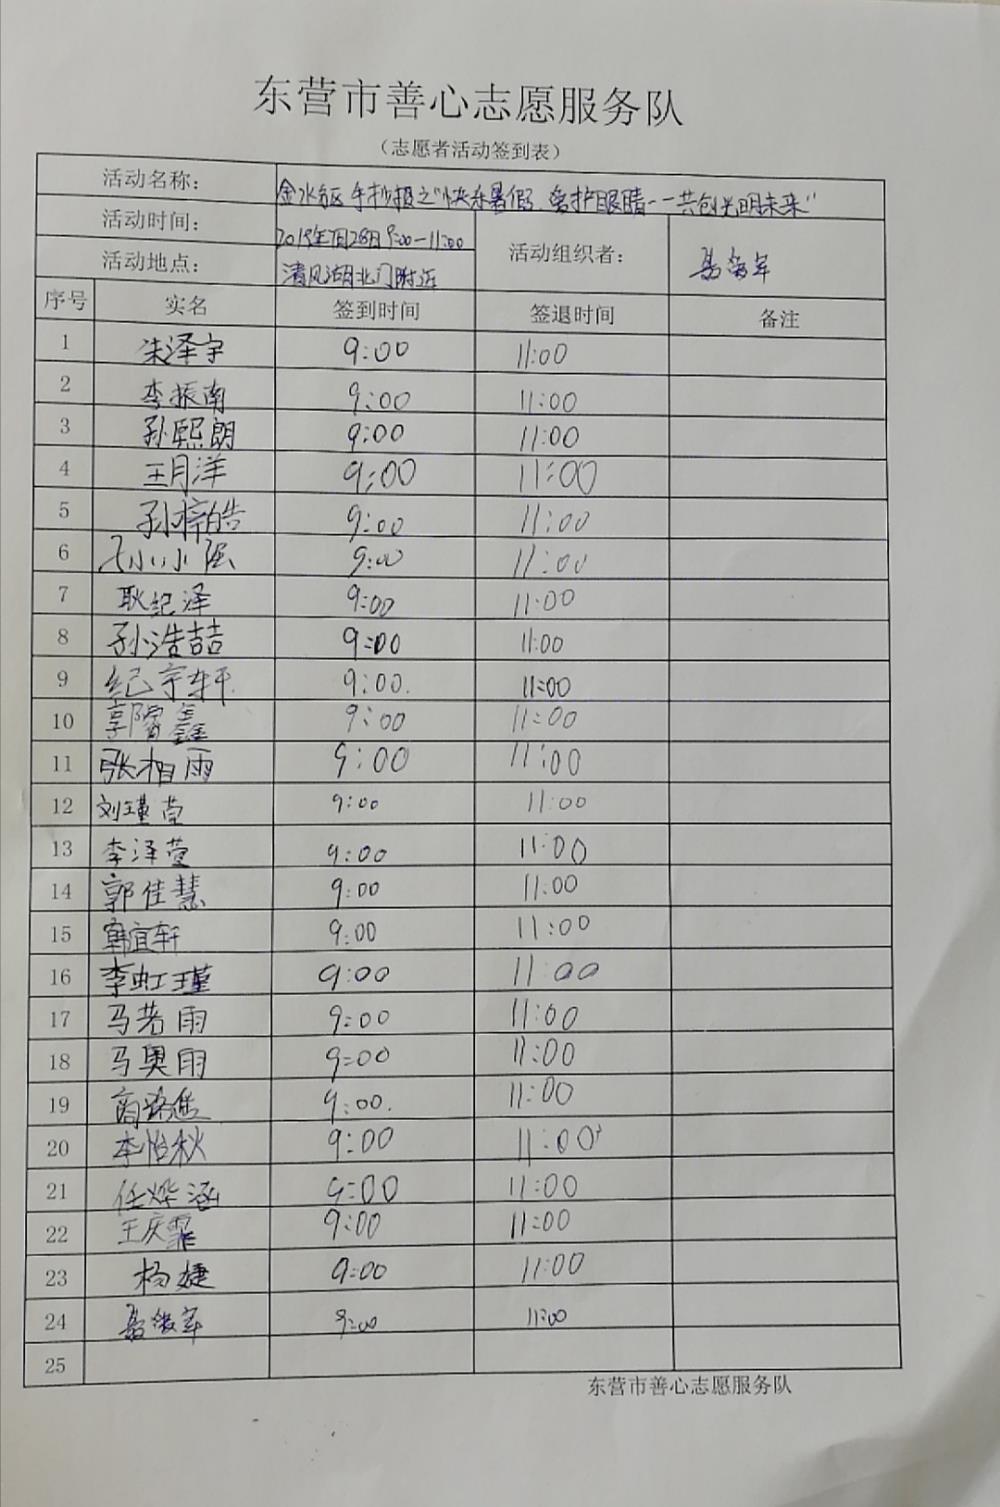 东营市善心志愿服务队
（志愿者活动签到表）
活动名称： 金水 区 手抄报之“快乐暑假 爱护眼睛--共创光明未来”
活动时间： 2019年7月28日9:00-11:00 活动组织者：
活动地点： 清风湖北门附近
序号 实名 签到时间 签退时间 备注
1 朱泽宇 9:00 11:00
2 李振南 9:00 11:00
3 孙熙朗 9:00 11:00
4 王月洋 9:00 11:00
5 孙梓皓 9:00 11:00
6 9:00 11:00
7 耿纪泽 9:00 11:00
8 孙浩喆 9:00 11:00
9 纪宇轩 9:00. 11:00
10 郭 鑫 9:00 11:00
11 张相雨 9:00 11:00
12 刘瑾萱 9:00 11:00
13 李泽莹 9:00 11:00
14 郭佳慧 9:00 11:00
15 宜轩 9:00 11:00
16 李虹瑾 9:00 11:00
17 马若雨 9:00 11:00
18 马奥雨 9:00 11:00
19 9:00. 11:00
20 李怡秋 9:00 11:00
21 任烨涵 9:00 11:00
22 王庆霏 9:00 11:00
23 杨婕 9:00 11:00
24 9:00 11:00
25
东营市善心志愿服务队